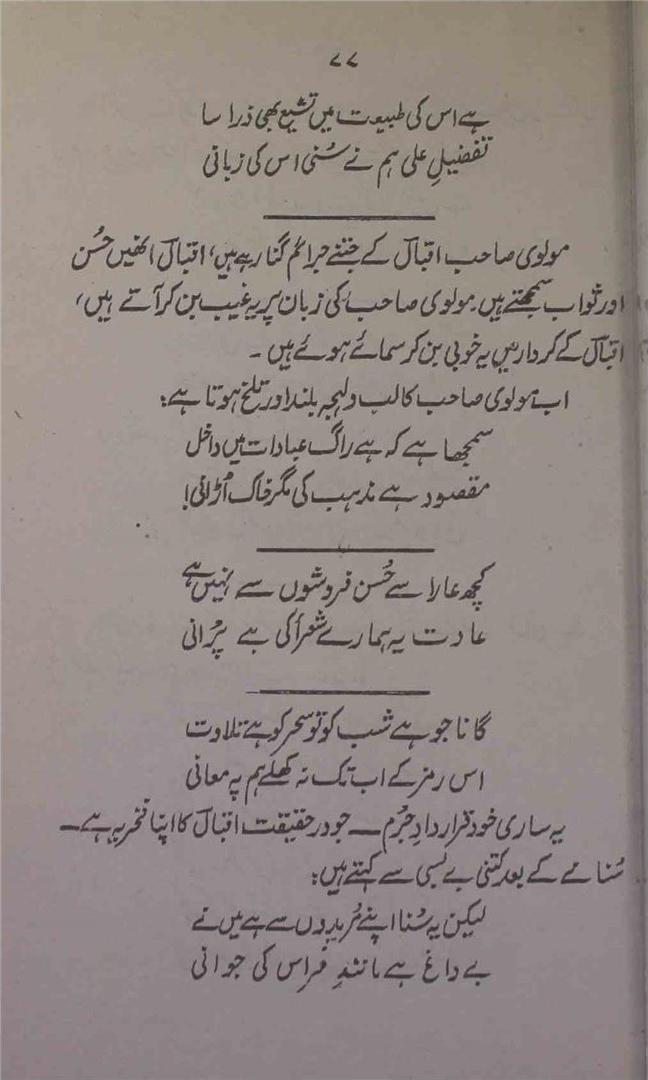 ۷۷
ہے اس کی طبیعت میں تشیع بھی ذرا سا
تفضیلِ علی ہم نے سُنی اس کی زبانی
مولوی صاحب اقبالؔ کے جتنے جرائم گنا رہے ہیں، اقبالؔ انھیں حُسن
اور ثواب سمجھتے ہیں۔ مولوی صاحب کی زبان پر یہ عیب بن کر آتے ہیں،
اقبالؔ کے کردار میں یہ خوبی بن کر سمائے ہوئے ہیں ۔
اب مولوی صاحب کا لب و لہجہ بلند اور تلخ ہوتا ہے:
سمجھا ہے کہ ہے راگ عبادات میں داخل
مقصود ہے مذہب کی مگر خاک اُڑانی!
کچھ عار اسے حُسن فروشوں سے نہیں ہے
عادت یہ ہمارے شعرأ کی ہے پرُانی
گانا جو ہے شب کو تو سحر کو ہے تلاوت
اس رمز کے اب تک نہ کھلے ہم پہ معانی
یہ ساری خود قرار دادِ جُرم — جو در حقیقت اقبالؔ کا اپنا فخریہ ہے —
سُنانے کے بعد کتنی بے بسی سے کہتے ہیں:
لیکن یہ سُنا اپنے مُریدوں سے ہے میں نے
بے داغ ہے مانندِ سحر اس کی جوانی